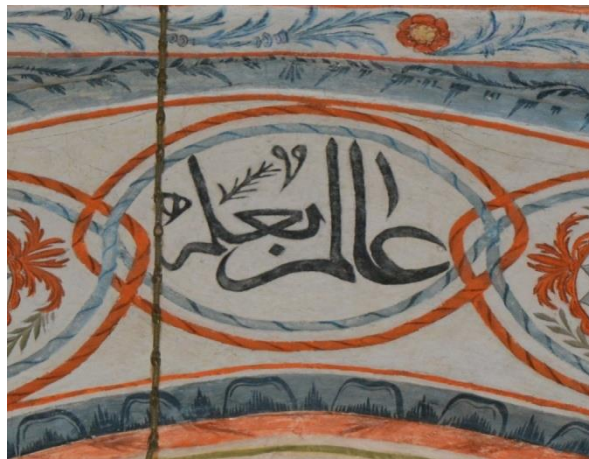 عالم بعلمه